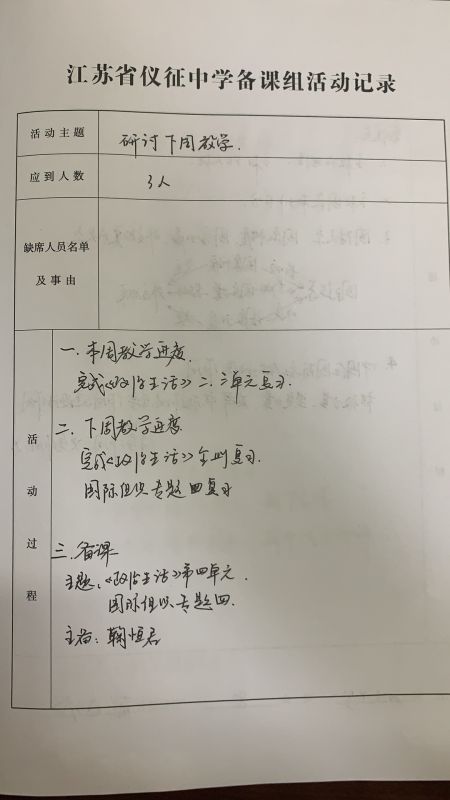 江苏省仪征中学备课组活动记录
活动主题
研讨下周教学.
应到人数
3人
缺席人员名单
及事由
活动过程
一.本周教学进度.
完成《政治生活》二.三单元复习.
二.下周教学进度
完成《政治生活》全册复习.
国际组织专题四复习
三.备课
主题:《政治生活》第四单元.
国际组织专题四.
主备:鞠恒君